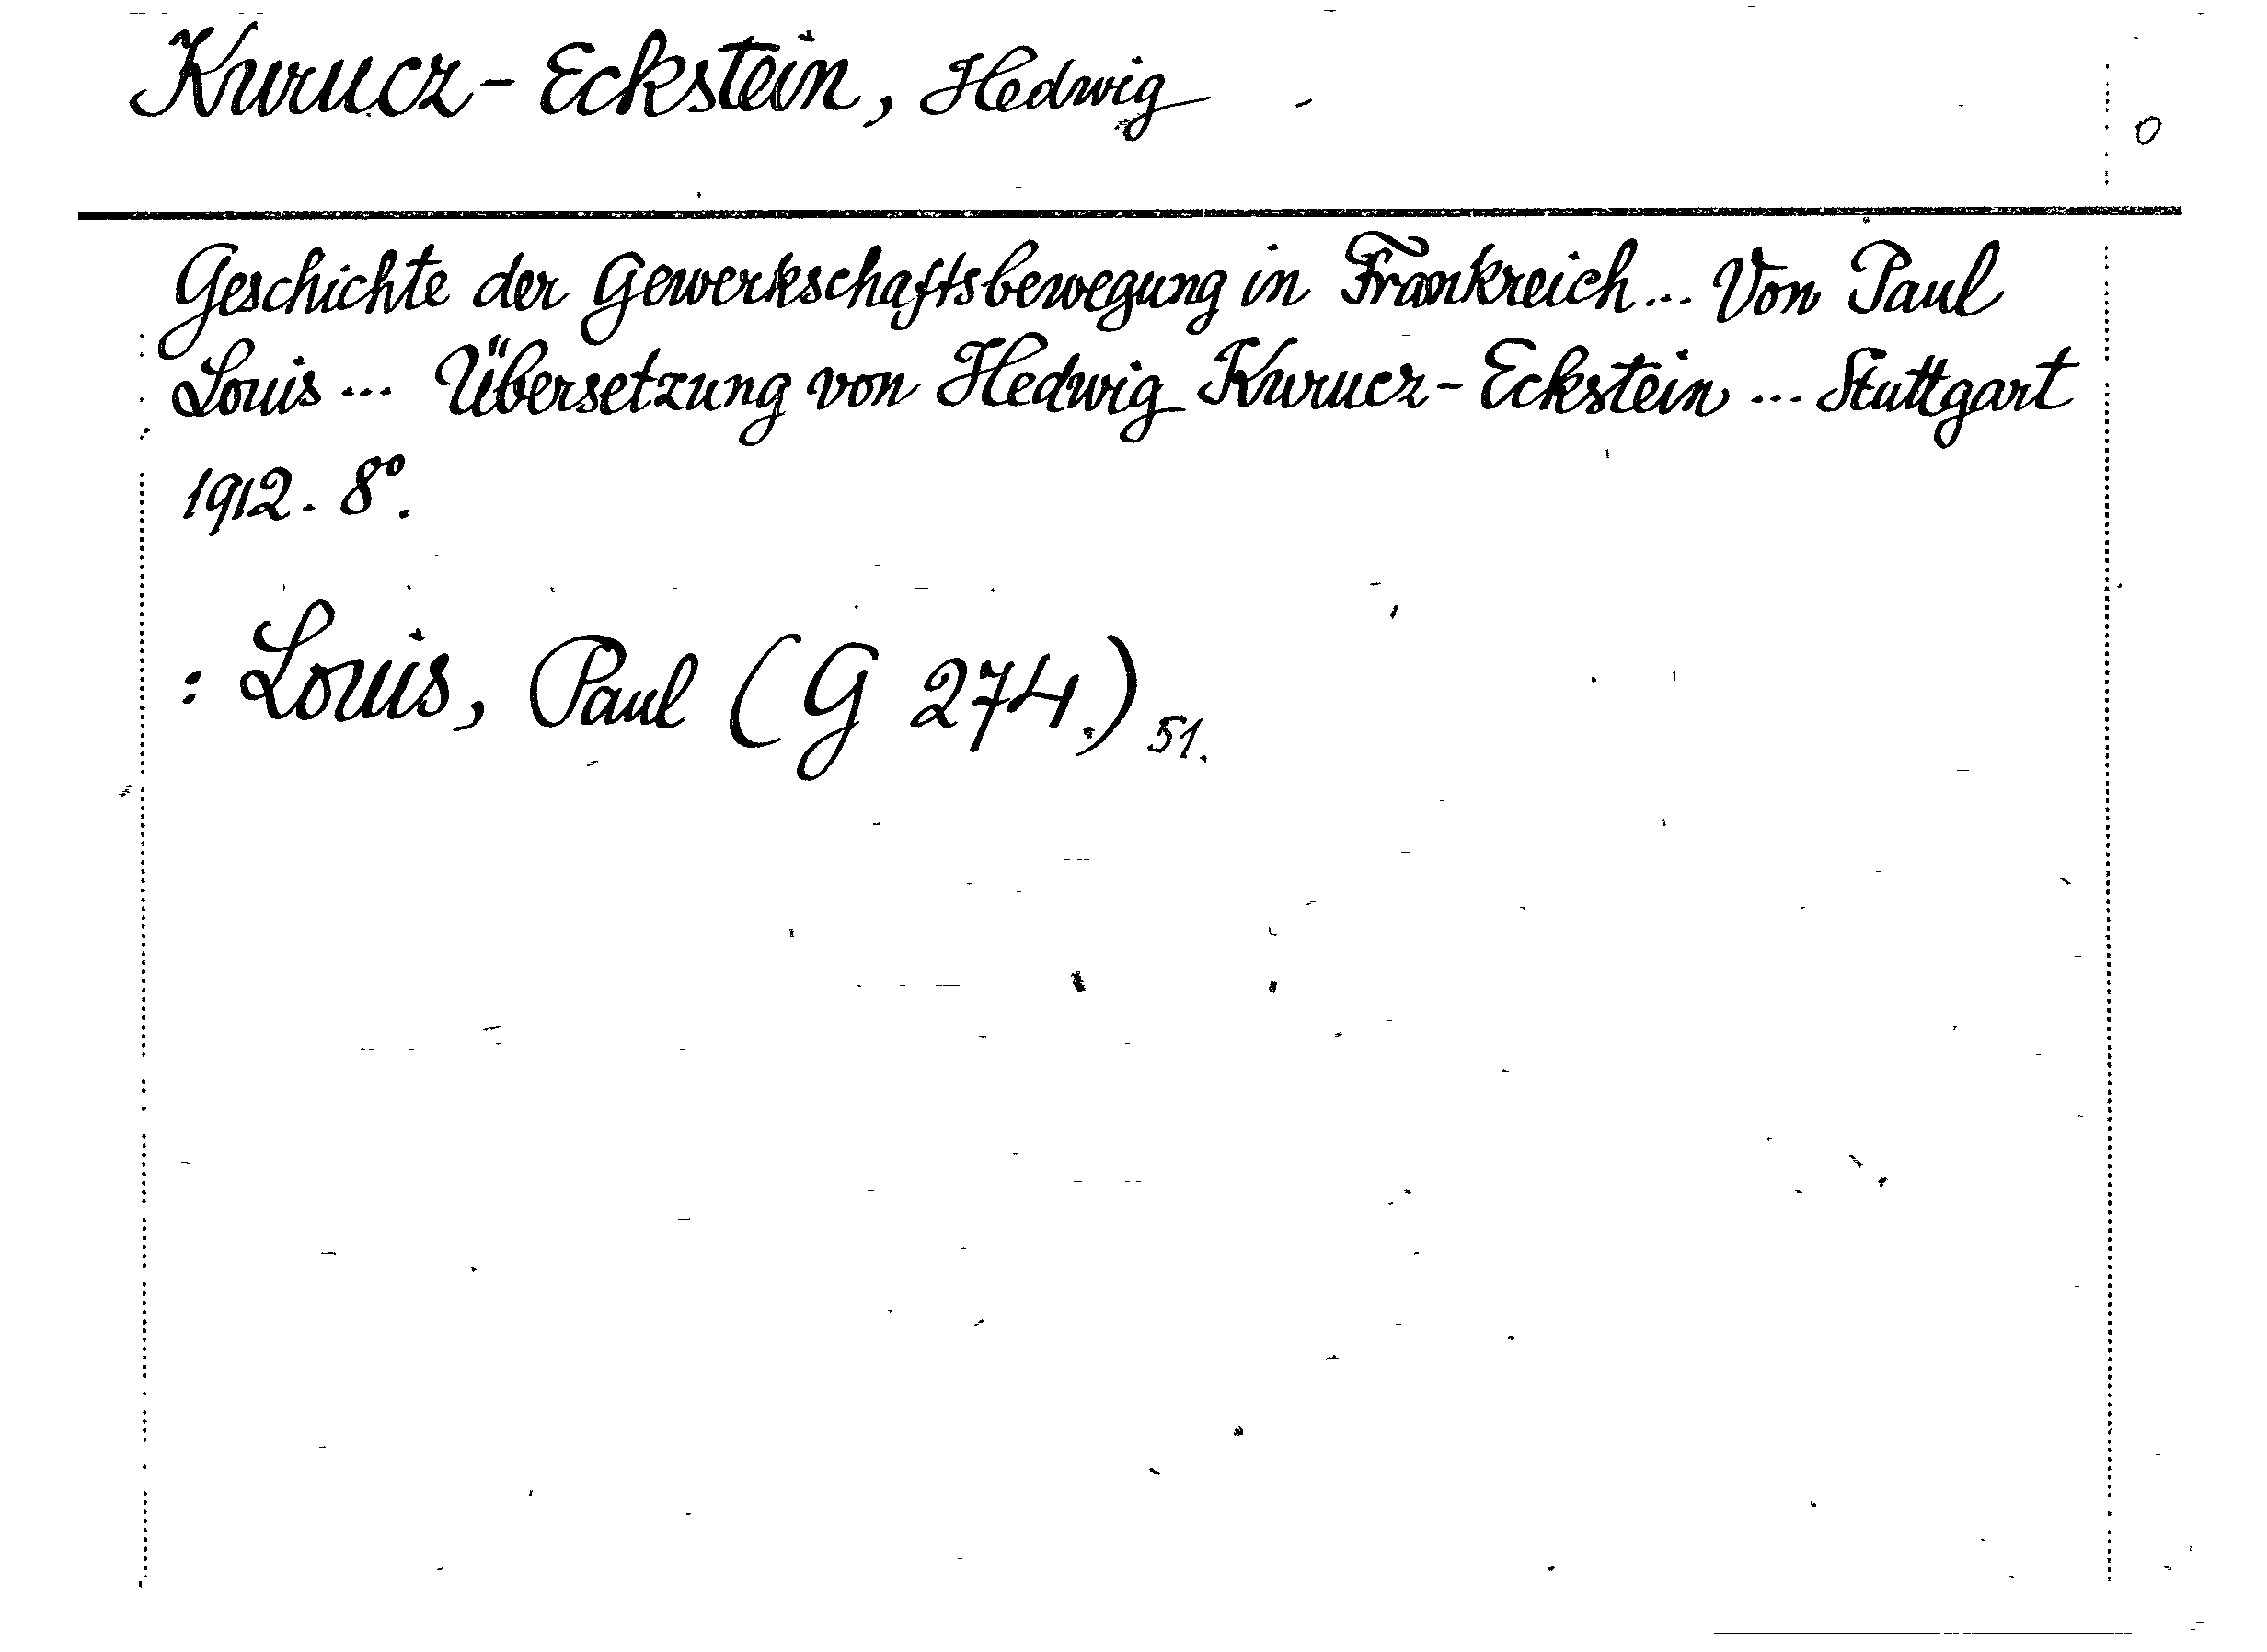 Kurucz-Eckstein, Hedwig
0
Geschichte der Gewerkschaftsbewegung in Frankreich... Von Paul
Louis... Übersetzung von Hedwig Kurucz-Eckstein... Stuttgart
1912. 8°.
: Louis, Paul (G 274.) 51.